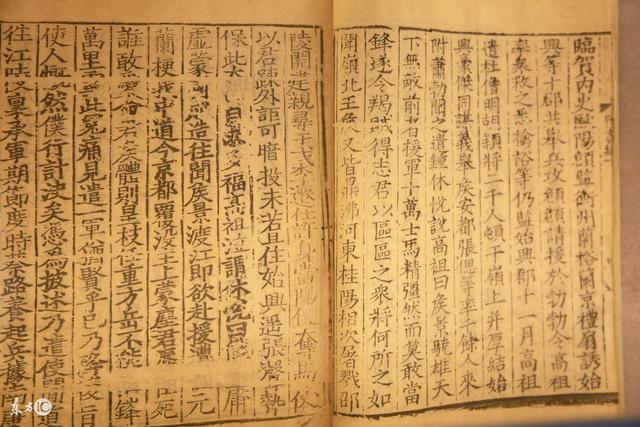 臨賀内史歐陽頠監衡州蘭裕蘭京禮扇誘始
興等十郡共舉兵攻頠頠請援於勃勃令高祖
率衆救之悉擒裕等仍監始興郡十一月高祖
遣杜僧明胡穎將二千人頓于嶺上并厚結始
興豪傑同謀義舉侯安都張偲等率千餘人來
附蕭勃聞之遣鍾休悅說高祖曰侯景驍雄天
下無敵前者援軍十萬士馬精彊然而莫敢當
鋒遂令羯賊得志君以區區之衆將何所之如
聞嶺北王侯又皆鼎沸河東桂陽相次屠戮邵
陵開建親尋干戈李遷仕許身當陽便奪馬仗
以君疎外詎可暗投未若且住始興遥張聲勢
保此太 自求多福高祖泣謂休悅曰 庸
虛蒙國成造往聞侯景渡江即欲赴援遭 元
蘭梗我中道今京都覆沒主上蒙塵君辱臣死
誰敢愛命君侯體則皇枝任重方岳不能 鋒
萬里雪此冤痛見遣一軍猶賢乎已乃 後旨
使人慨然僕行計決矣憑為披述乃遣使間道
往江陵稟承軍期節度時蔡路養起兵據南康
東方IC